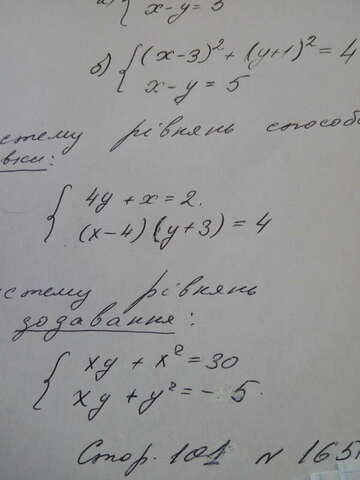 x-y=5
б) { (x-3)² + (y+1)² = 4
x-y = 5
стему рівнянь способо
вки:
{ 4y + x = 2.
(x-4)(y+3) = 4
стему рівнянь
додавання:
{ xy + x² = 30
xy + y² = -5.
Стор. 101 № 165